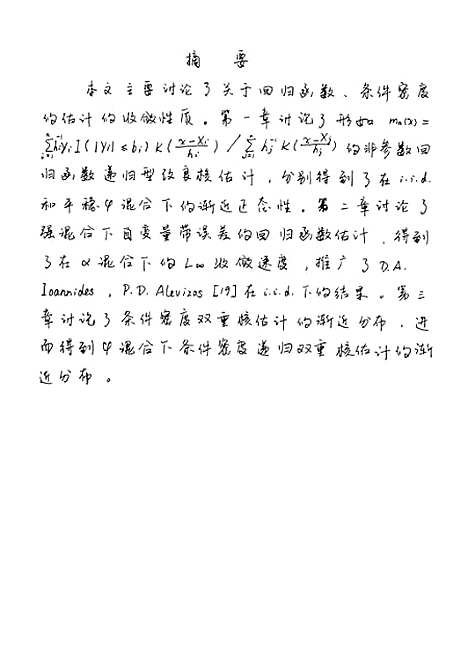 摘 要
本文主要讨论了关于回归函数、条件密度
的估计的收敛性质。第一章讨论了形如 mₙ(x)=
∑ⁿᵢ₌₁hᵢ⁻¹YᵢI(|Yᵢ|≤bᵢ)K((x-Xᵢ)/hᵢ)/∑ⁿⱼ₌₁hⱼ⁻¹K((x-Xⱼ)/hⱼ) 的非参数回
归函数递归型改良核估计，分别得到了在 i.i.d.
和平稳φ混合下的渐近正态性。第二章讨论了
强混合下自变量带误差的回归函数估计，得到
了在α混合下的L∞收敛速度，推广了D.A.
Ioannides，P.D.Alevizos [19]在i.i.d.下的结果。第三
章讨论了条件密度双重核估计的渐近分布，进
而得到φ混合下条件密度递归双重核估计的渐
近分布。